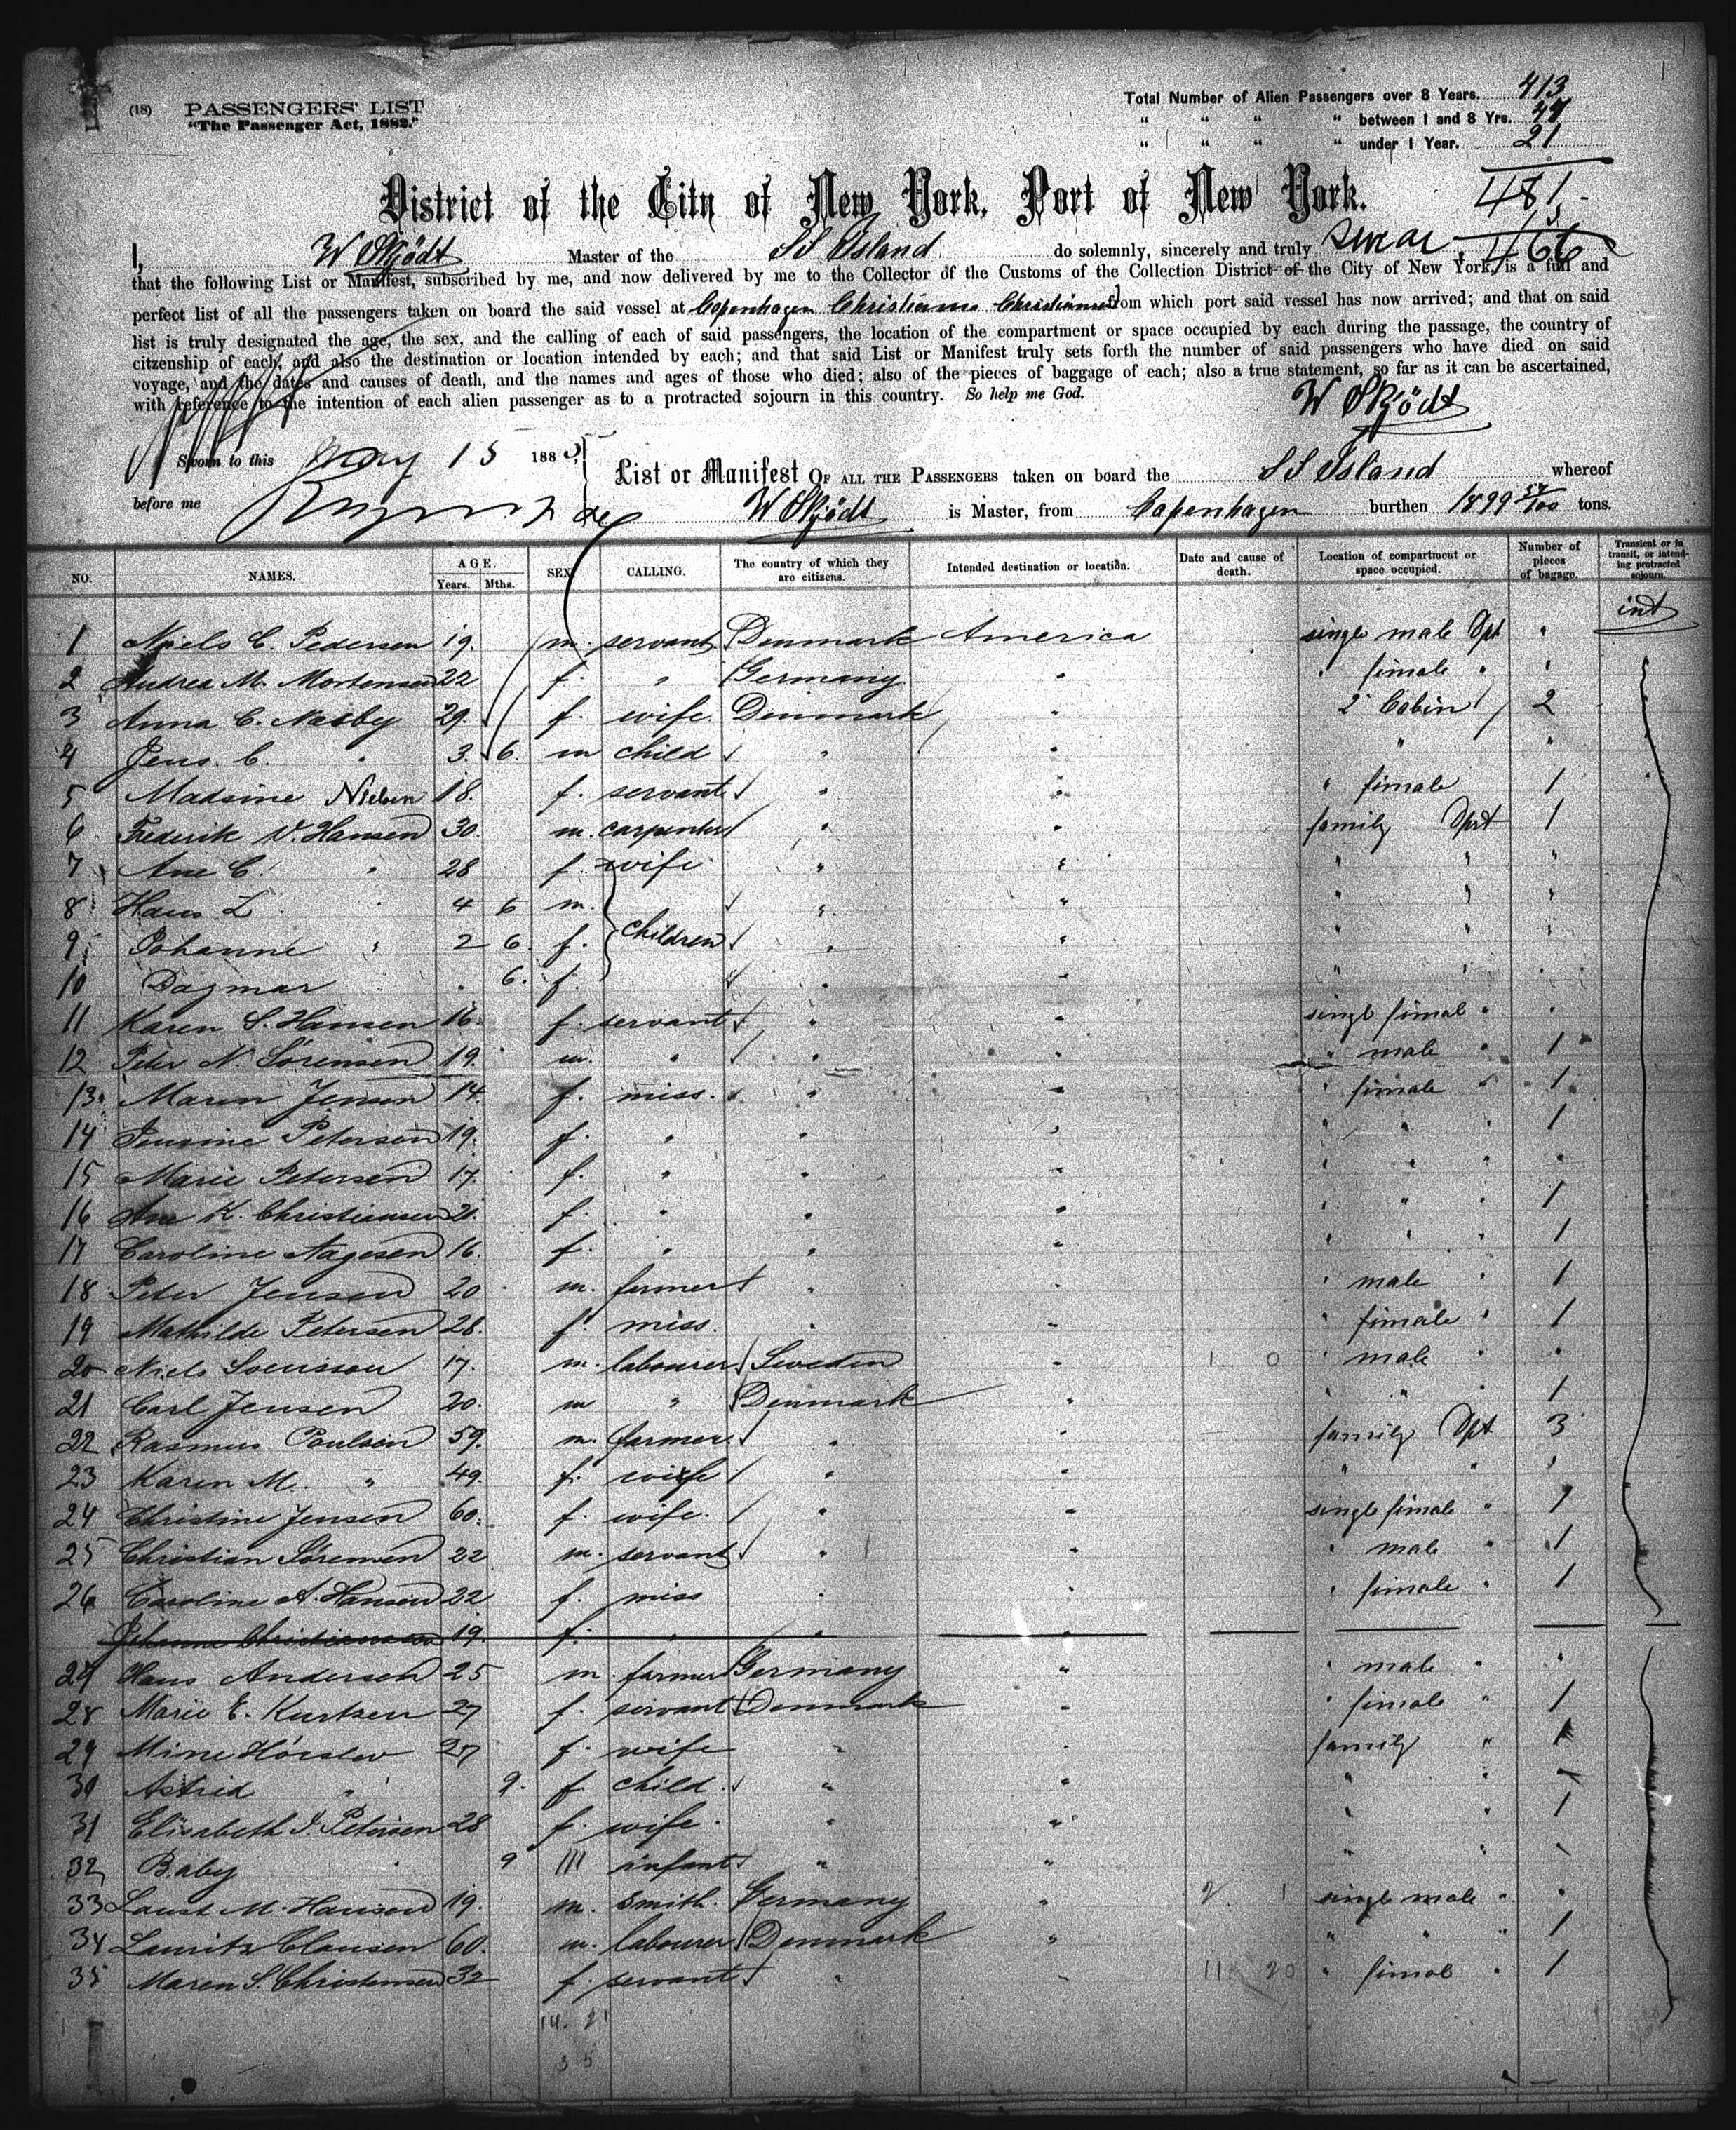 (18) PASSENGERS' LIST
"The Passenger Act, 1882."
Total Number of Alien Passengers over 8 Years. 413
" " " " between 1 and 8 Yrs. 47
" " " " under 1 Year. 21
481
466
District of the City of New York, Port of New York.
I, W Skjödt Master of the SS Island do solemnly, sincerely and truly swear
that the following List or Manifest, subscribed by me, and now delivered by me to the Collector of the Customs of the Collection District of the City of New York, is a full and
perfect list of all the passengers taken on board the said vessel at Copenhagen Christiania Christiansand from which port said vessel has now arrived; and that on said
list is truly designated the age, the sex, and the calling of each of said passengers, the location of the compartment or space occupied by each during the passage, the country of
citzenship of each, and also the destination or location intended by each; and that said List or Manifest truly sets forth the number of said passengers who have died on said
voyage, and the dates and causes of death, and the names and ages of those who died; also of the pieces of baggage of each; also a true statement, so far as it can be ascertained,
with reference to the intention of each alien passenger as to a protracted sojourn in this country. So help me God.
W Skjödt
Sworn to this May 15 188
before me
List or Manifest OF ALL THE PASSENGERS taken on board the SS Island whereof
W Skjödt is Master, from Copenhagen burthen 1899 57/100 tons.
NO. NAMES. AGE. Years. Mths. SEX CALLING. The country of which they are citizens. Intended destination or location. Date and cause of death. Location of compartment or space occupied. Number of pieces of bagage. Transient or in transit, or intending protracted sojourn.
int
1 Niels C. Pedersen 19. m. servant Denmark America single male Dpt "
2 Andrea M. Mortensen 22 f. " Germany " " female " "
3 Anna C. Nesby 29. f. wife Denmark " 2 Cabin 2
4 Jens. C. " 3. 6. m child " " " "
5 Madsine Nielsen 18. f. servant " " " female 1
6 Frederik V. Hansen 30. m. carpenter " " family Dprt 1
7 Ane C. " 28 f. wife " " " " "
8 Hans L " 4 6 m. " " " " "
9 Johanne " 2 6. f. children " " " " "
10 Dagmar 6. f. " " " " "
11 Karen S. Hansen 16. f. servant " " singl fimal " "
12 Peter N. Sörensen 19. m. " " " " male " 1
13 Maren Jensen 14. f. miss. " " " fimale " 1
14 Jensine Petersen 19. f. " " " " " " 1
15 Marie Petersen 17. f. " " " " " " "
16 Ane K. Christiansen 21. f. " " " " " " 1
17 Caroline Aagesen 16. f. " " " " " " 1
18 Peter Jensen 20 m. farmer " " " male " 1
19 Mathilde Petersen 28. f. miss. " " " fimale " 1
20 Niels Svensson 17. m. labourer Sweden " 1 0 " male " "
21 Carl Jensen 20. m " Denmark " " " 1
22 Rasmus Poulsen 59. m. farmer " " family Dpt 3
23 Karen M. " 49. f. wife " " " " "
24 Christine Jensen 60. f. wife. " " singl fimale " 1
25 Christian Sörensen 22 m. servant " " " male " 1
26 Caroline A. Hansen 22 f. miss " " " fimale " 1
Johanne Christiansen 19. f. " " "
27 Hans Andersen 25 m. farmer Germany " " male " "
28 Marie E. Kurtzen 27 f. servant Denmark " " fimale " 1
29 Mine Hörslev 27 f. wife " " family " 1
30 Astrid " 9. f. child. " " " " "
31 Elisabeth J. Petersen 28 f. wife. " " " " 1
32 Baby " 9 infant " " " " "
33 Laust M. Hansen 19. m. smith. Germany " 2 1 singl male " "
34 Lauritz Clausen 60. m. labourer Denmark " " " " 1
35 Maren S. Christensen 32 f. servant " " 11 20 " fimal " 1
14. 21
35